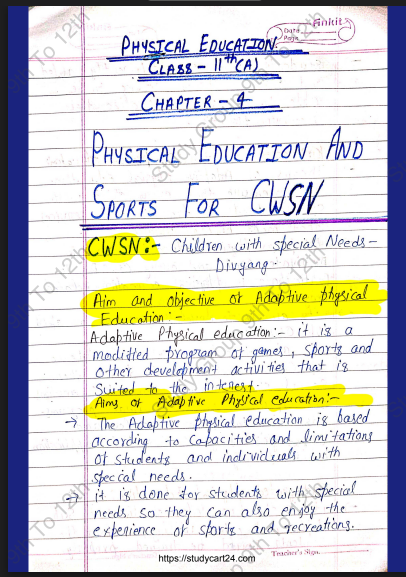 Ankit
Date
Page
PHYSICAL EDUCATION:
CLASS - 11th (A)
CHAPTER - 4
PHYSICAL EDUCATION AND
SPORTS FOR CWSN
CWSN:- Children with special Needs -
Divyang.
Aim and objective of Adaptive physical
Education:-
Adaptive Physical education:- it is a
modified program of games, sports and
other development activities that is
suited to the interest.
Aims of Adaptive Physical education:-
→ The Adaptive physical education is based
according to capacities and limitations
of students and individuals with
special needs.
→ it is done for students with special
needs so they can also enjoy the
experience of sports and recreations.
https://studycart24.com
Teacher's Sign.
Study Group 9th To 12th